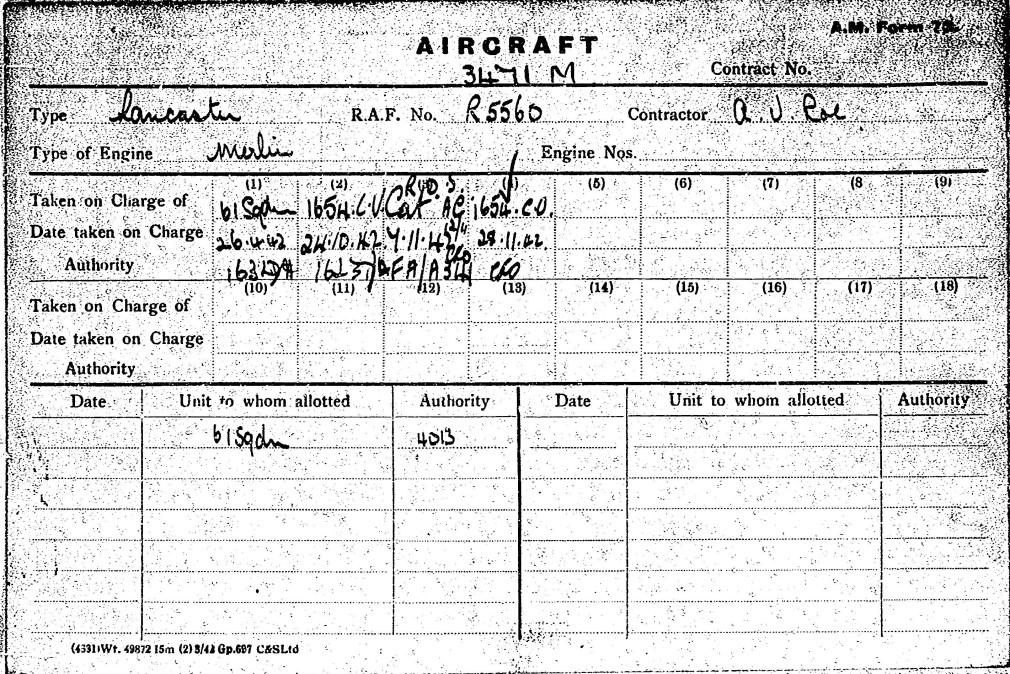 A.M. Form 78.
AIRCRAFT
3471 M
Contract No.
Type Lancaster R.A.F. No. R5560 Contractor A. V. Roe
Type of Engine Merlin Engine Nos.
(1) (2) (5) (6) (7) (8 (9)
Taken on Charge of 61 Sqdn 1654.C.U. Cat AC 1654.C.U.
Date taken on Charge 26.4.42 24.10.42 7.11.42 28.11.42.
Authority
(10) (11) (12) (13) (14) (15) (16) (17) (18)
Taken on Charge of
Date taken on Charge
Authority
Date Unit to whom allotted Authority Date Unit to whom allotted Authority
61 Sqdn 4013
(4331) Wt. 49872 15m (2) 3/42 Gp.697 C&SLtd